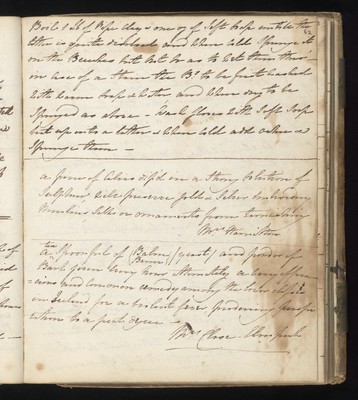 Boil 1 lb of Pipe clay & one oz of Soft Soap untill the
latter is quite dissolved and when cold Sponge it
on the Breeches but not so as to wet them thro
in case of a stain the Bs to be first washed
with warm soap & water and when dry to be
Sponged as above - Wash Gloves with Soft Soap
but up into a latter & when cold add when
Sponge them -
a piece of dip'd in a strong Solution of
Sulphur will preserve gold & Silver Embroidery
Muslins Silks or ornaments from tarnishing
Mrs Hamilton
a tea Spoonful of (Balm / Barm) (yeast) and powder of
Bark given every hour alternately a very effica
cious and common remedy among the lower class
in Ireland for a violent fever producing perspi
ration to a great degree -
Mrs Close
62